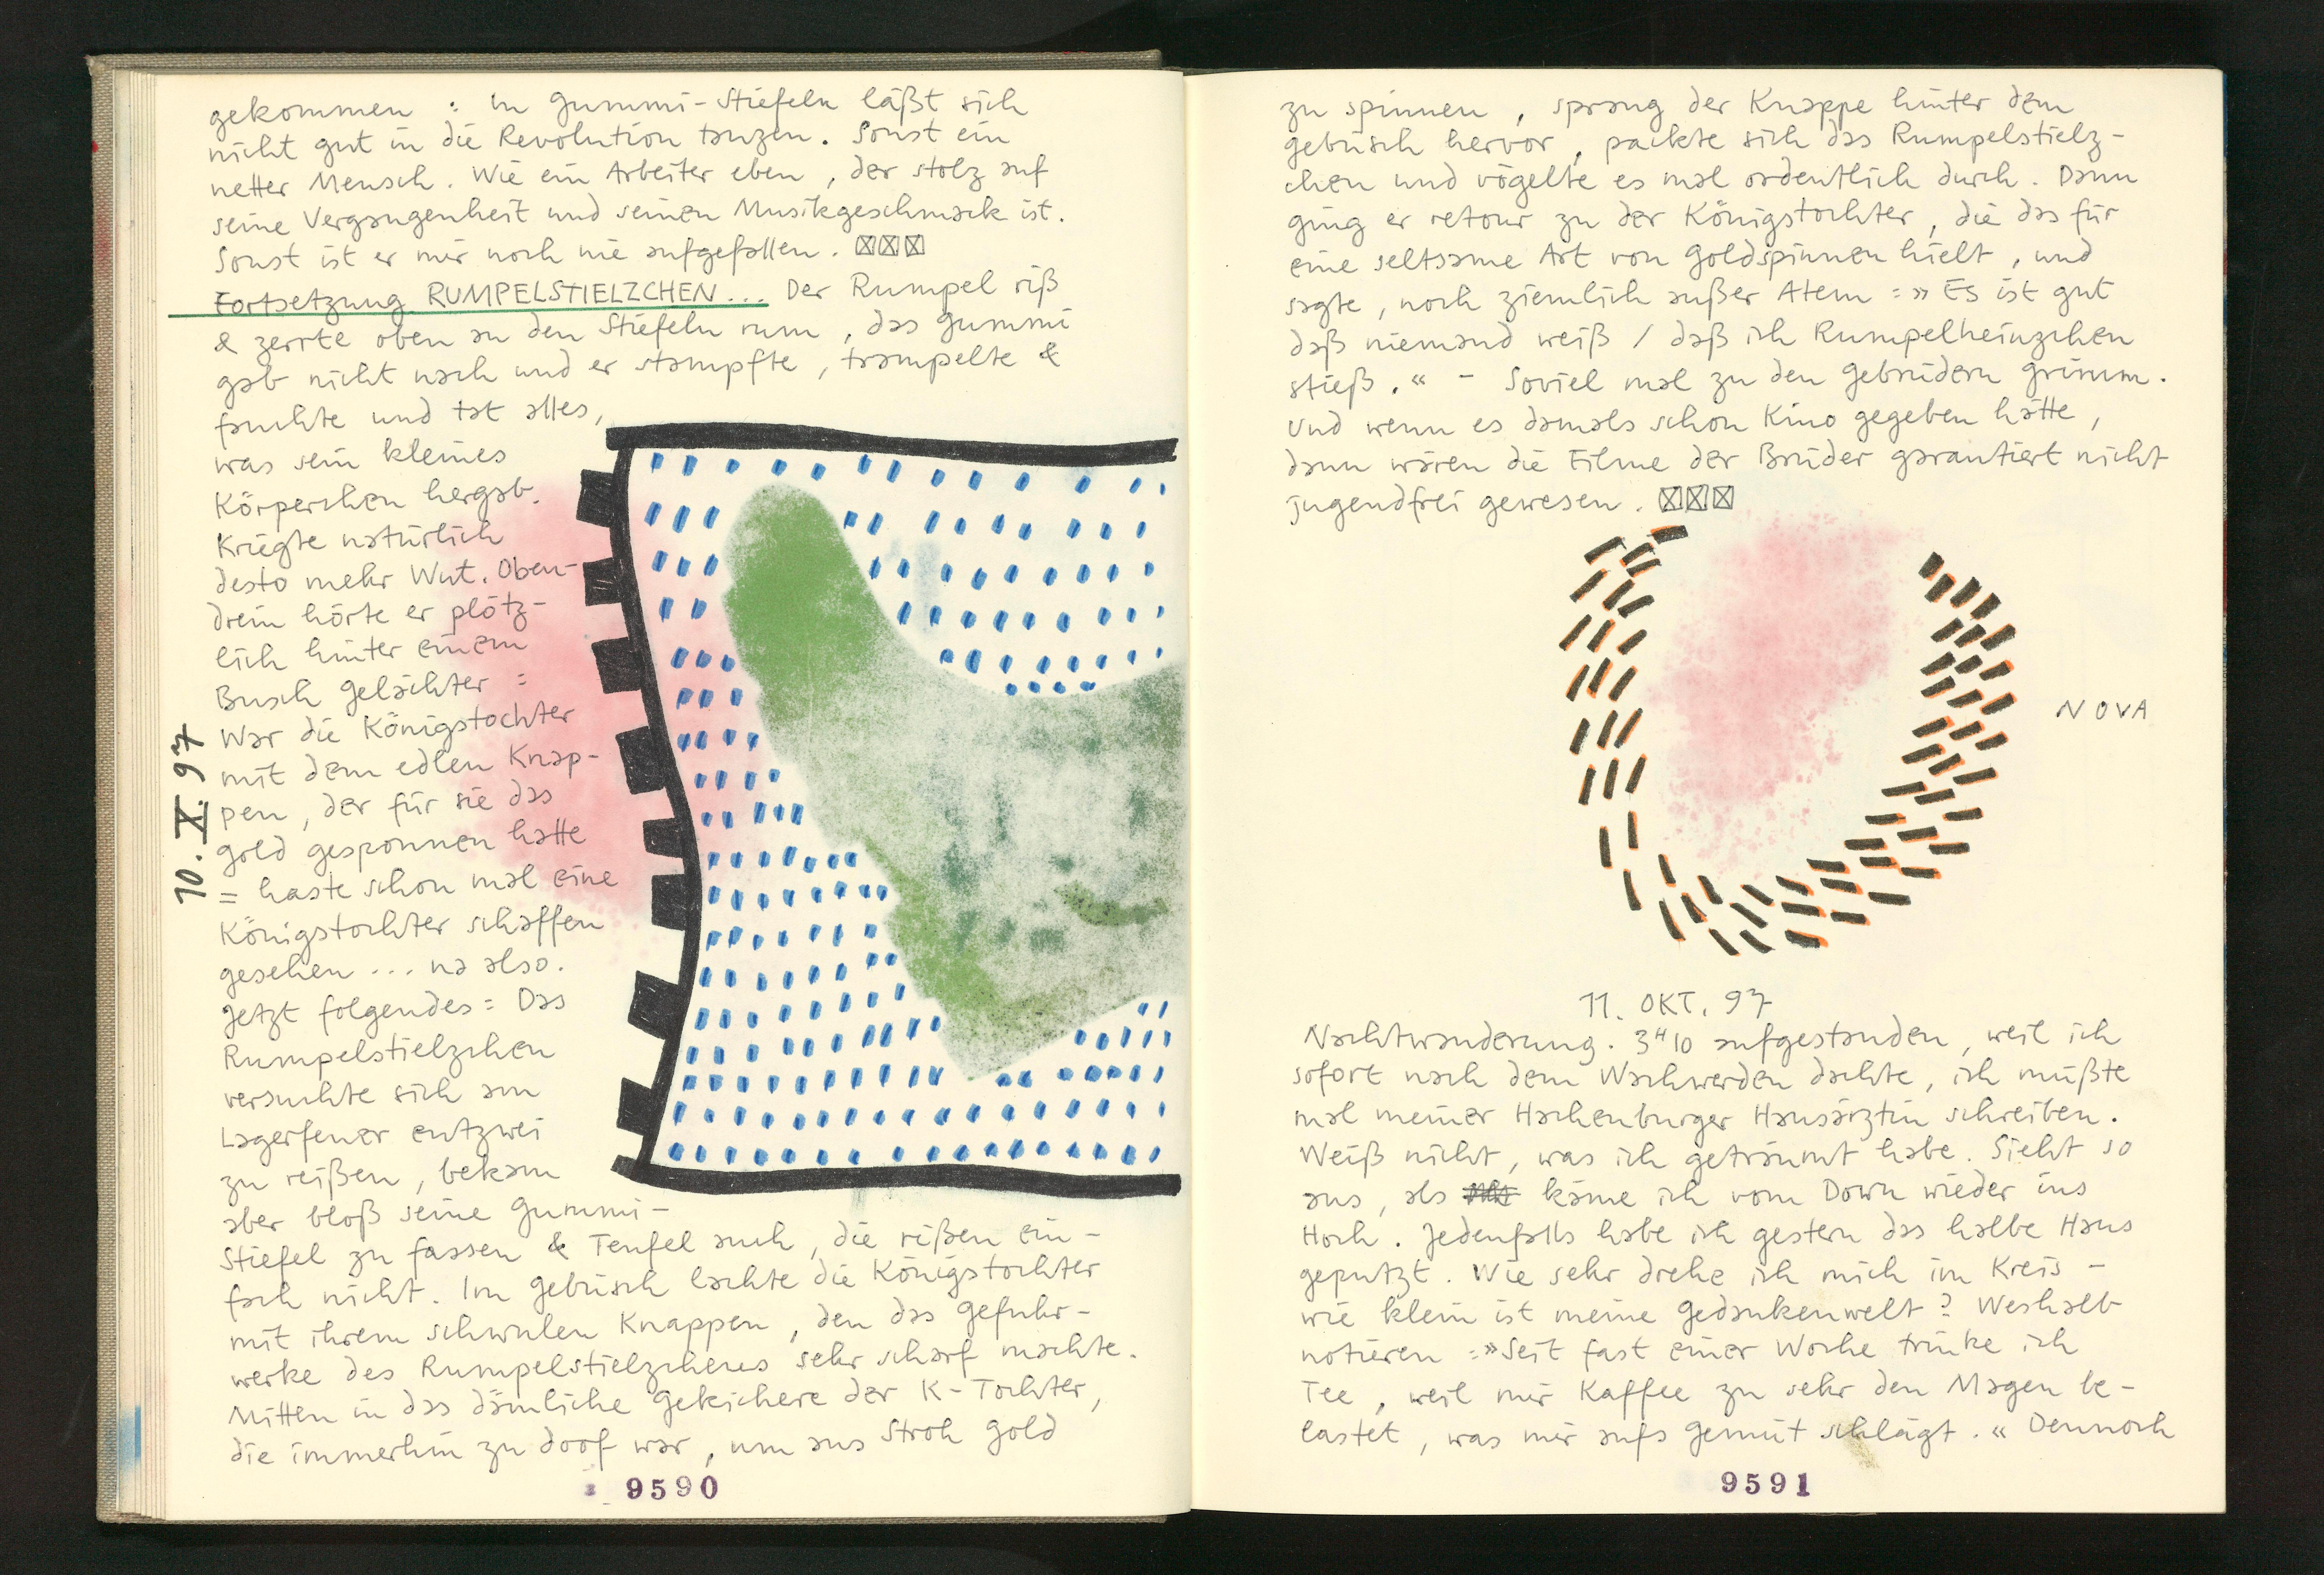 gekommen : in Gummi-Stiefeln läßt sich
nicht gut in die Revolution tanzen. Sonst ein
netter Mensch. Wie ein Arbeiter eben, der stolz auf
seine Vergangenheit und seinen Musikgeschmack ist.
Sonst ist er mir noch nie aufgefallen. ☒☒☒
Fortsetzung RUMPELSTIELZCHEN... Der Rumpel riß
& zerrte oben an den Stiefeln rum, das Gummi
gab nicht nach und er stampfte, trampelte &
fauchte und tat alles,
was sein kleines
Körperchen hergab.
Kriegte natürlich
desto mehr Wut. Oben-
drein hörte er plötz-
lich hinter einem
Busch Gelächter :
War die Königstochter
mit dem edlen Knap-
pen, der für sie das
Gold gesponnen hatte
= haste schon mal eine
Königstochter schaffen
gesehen ... na also.
Jetzt folgendes: Das
Rumpelstielzchen
versuchte sich am
Lagerfeuer entzwei
zu reißen, bekam
aber bloß seine Gummi-
Stiefel zu fassen & Teufel auch, die rißen ein-
fach nicht. Im Gebüsch lachte die Königstochter
mit ihrem schwulen Knappen, den das Gefuhr-
werke des Rumpelstielzchens sehr scharf machte.
Mitten in das dämliche Gekichere der K-Tochter,
die immerhin zu doof war, um aus Stroh Gold
10. X. 97
9590
zu spinnen, sprang der Knappe hinter dem
Gebüsch hervor, packte sich das Rumpelstielz-
chen und vögelte es mal ordentlich durch. Dann
ging er retour zu der Königstochter, die das für
eine seltsame Art von Goldspinnen hielt, und
sagte, noch ziemlich außer Atem : » Es ist gut
daß niemand weiß / daß ich Rumpelheinzchen
stieß. « - Soviel mal zu den Gebrüdern Grimm.
Und wenn es damals schon Kino gegeben hätte,
dann wären die Filme der Brüder garantiert nicht
jugendfrei gewesen. ☒☒☒
NOVA
11. OKT. 97
Nachtwanderung. 3ᴴ10 aufgestanden, weil ich
sofort nach dem Wachwerden dachte, ich müßte
mal meiner Hachenburger Hausärztin schreiben.
Weiß nicht, was ich geträumt habe. Sieht so
aus, als käme ich vom Down wieder ins
Hoch. Jedenfalls habe ich gestern das halbe Haus
geputzt. Wie sehr drehe ich mich im Kreis -
wie klein ist meine Gedankenwelt? Weshalb
notieren : »Seit fast einer Woche trinke ich
Tee, weil mir Kaffee zu sehr den Magen be-
lastet, was mir aufs Gemüt schlägt. « Dennoch
9591